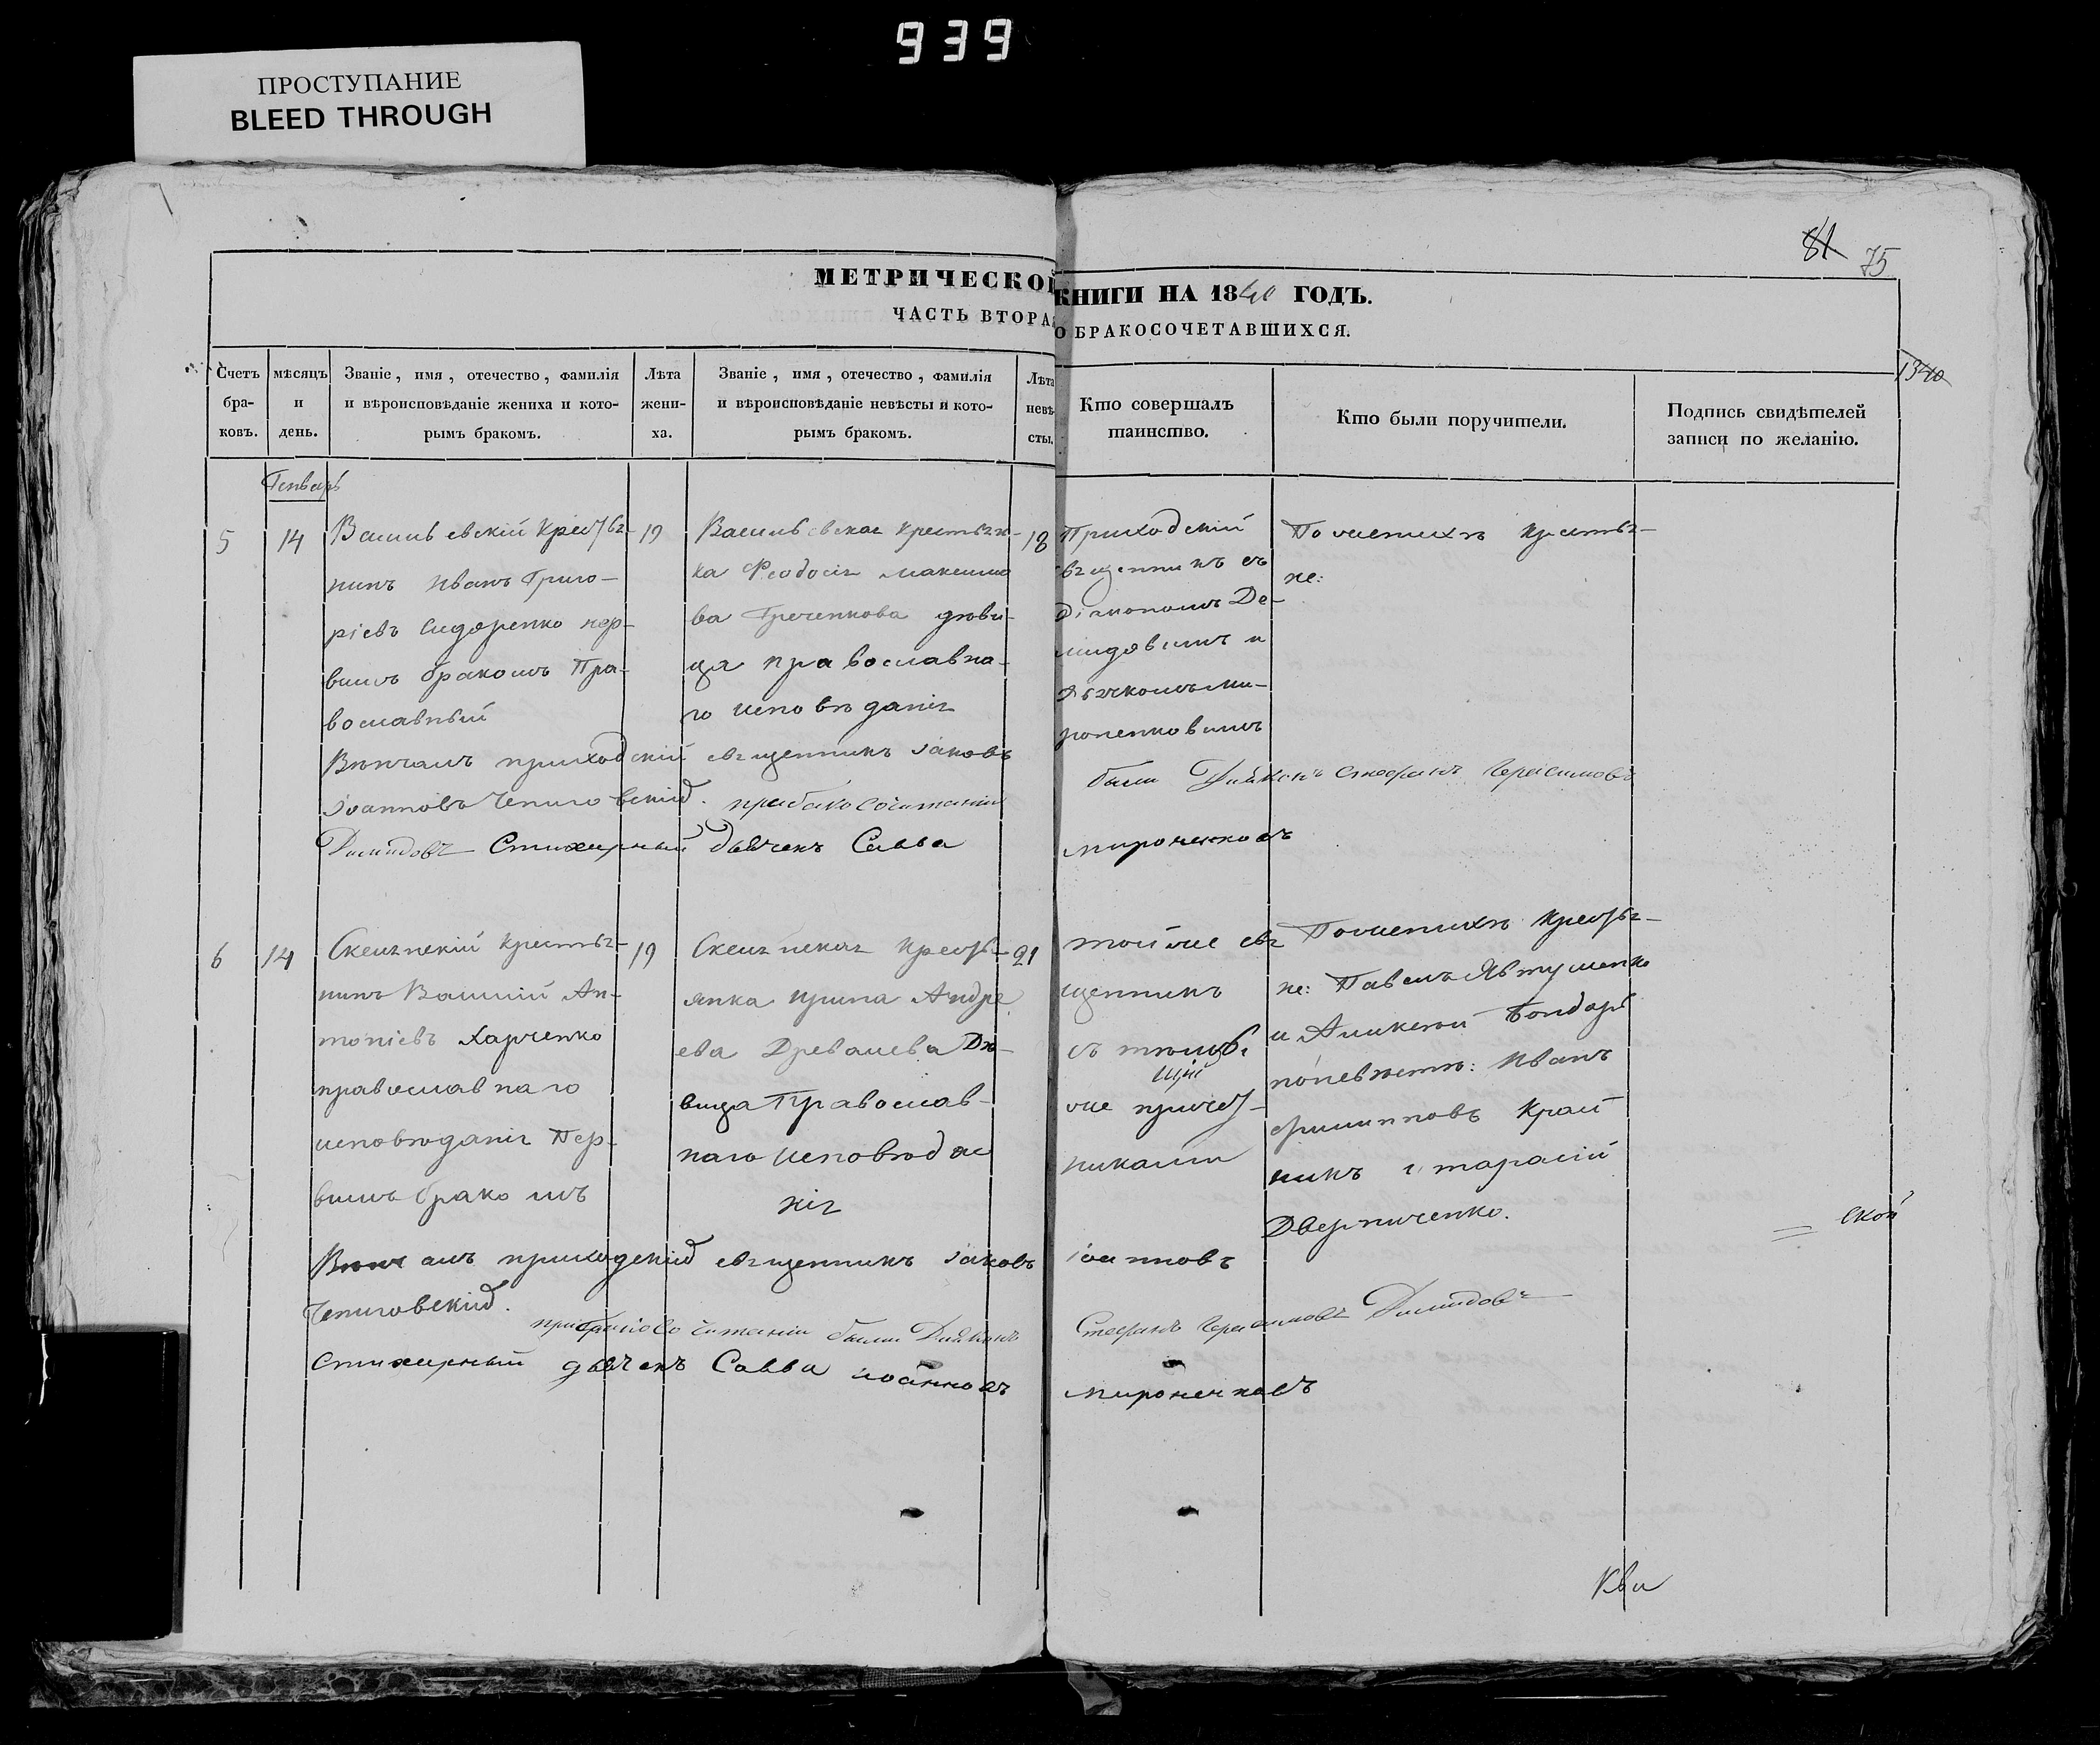 939
ПРОСТУПАНИЕ
BLEED THROUGH
81 75
МЕТРИЧЕСКОЙ КНИГИ НА 1840 ГОДЪ.
ЧАСТЬ ВТОРАЯ О БРАКОСОЧЕТАВШИХСЯ.
1340
Счетъ бра-ковъ.
мѣсяцъ и день.
Званіе, имя, отечество, фамилія
и вѣроисповѣданіе жениха и кото-
рымъ бракомъ.
Лѣта жени-ха.
Званіе, имя, отечество, фамилія
и вѣроисповѣданіе невѣсты и кото-
рымъ бракомъ.
Лѣта невѣ-сты.
Кто совершалъ
таинство.
Кто были поручители.
Подпись свидѣтелей
записи по желанію.
Генварь
5
14
Васильевскій крестья-
нинъ Иванъ Григо-
ріевъ Сидоренко пер-
вымъ бракомъ Пра-
вославный
19
Васильевская крестьян-
ка Феодосія Максимо
ва Греченкова дѣви-
ца православна-
го исповѣданія
18
Приходскій
священникъ съ
діакономъ Де-
мидовымъ и
дьячкомъ Ми-
роненковымъ
По женихѣ крестья-
не:
Вѣнчалъ приходскій священникъ Іаковъ
Іоанновъ Чепиговскій. при бракосочитаніи были Диякопъ Стефанъ Герасимовъ
Димидовъ Стихарный дьячекъ Савва мироненковъ
6
14
крестья-
нинъ Василій Ан-
тоніевъ Харченко
православнаго
исповѣданія Пер-
вымъ бракомъ
19
крестья-
янка Ирина Андре
ева Древалева Дѣ-
вица Православ-
наго исповѣда
нія
21
тотже свя
щенникъ
съ тѣмиже
причет-
никами
По женихѣ крестья-
не: Павелъ Явтушенко
и Аликсѣй Бондарь
по невѣстѣ: Иванъ
Филипповъ Край
никъ и тарасій
Дверниченко.
ской
Вѣнчалъ приходскій священникъ Іаковъ Іоанновъ
Чепиговскій. при бракосочитаніи были Диякопъ Стефанъ Герасимовъ Димидовъ
Стихарный дьячекъ Савва иоанновъ мироненковъ